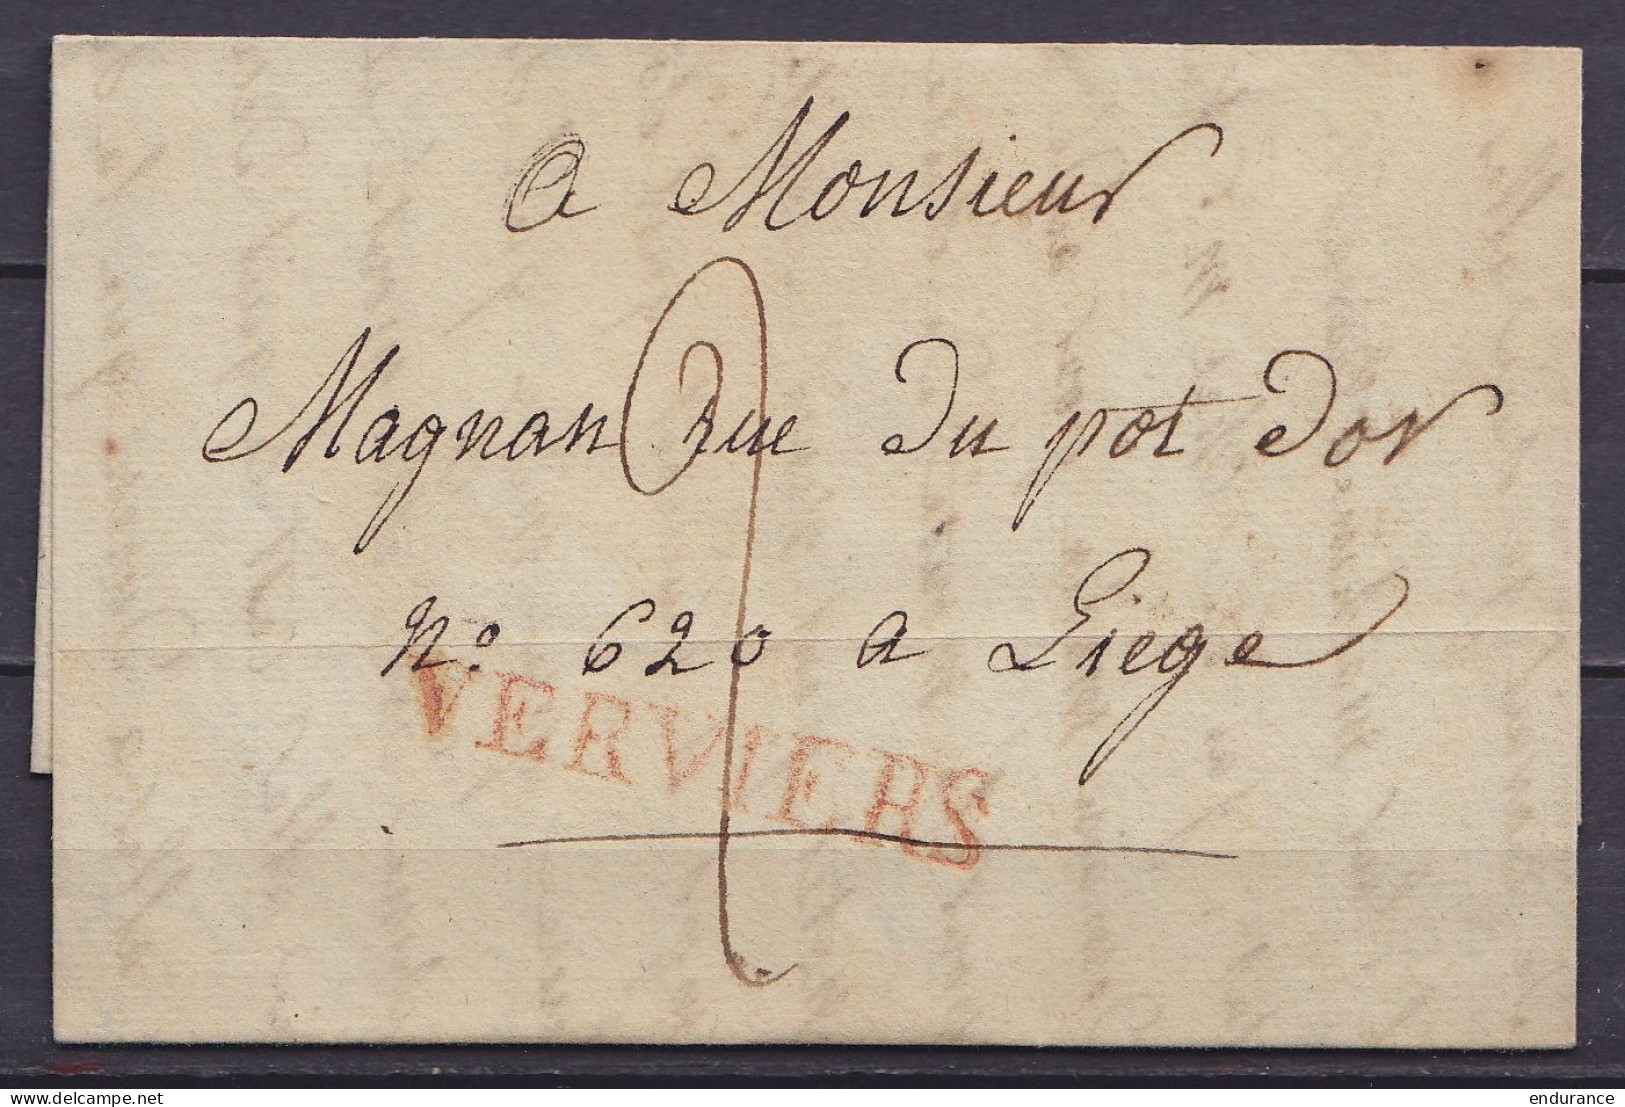 a Monsieur
Magnan Rue du pot dor
No. 620 a Liege
VERVIERS
2
delcampe.net
endurance